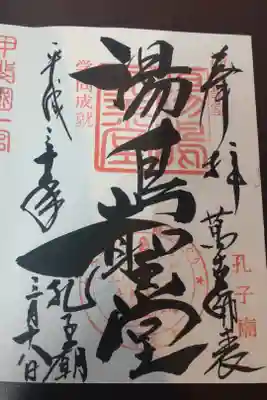 奉拝
萬世師表
孔子廟
湯島聖堂
学問成就
平成三十年
孔子廟
三月十八日
甲斐國一宮